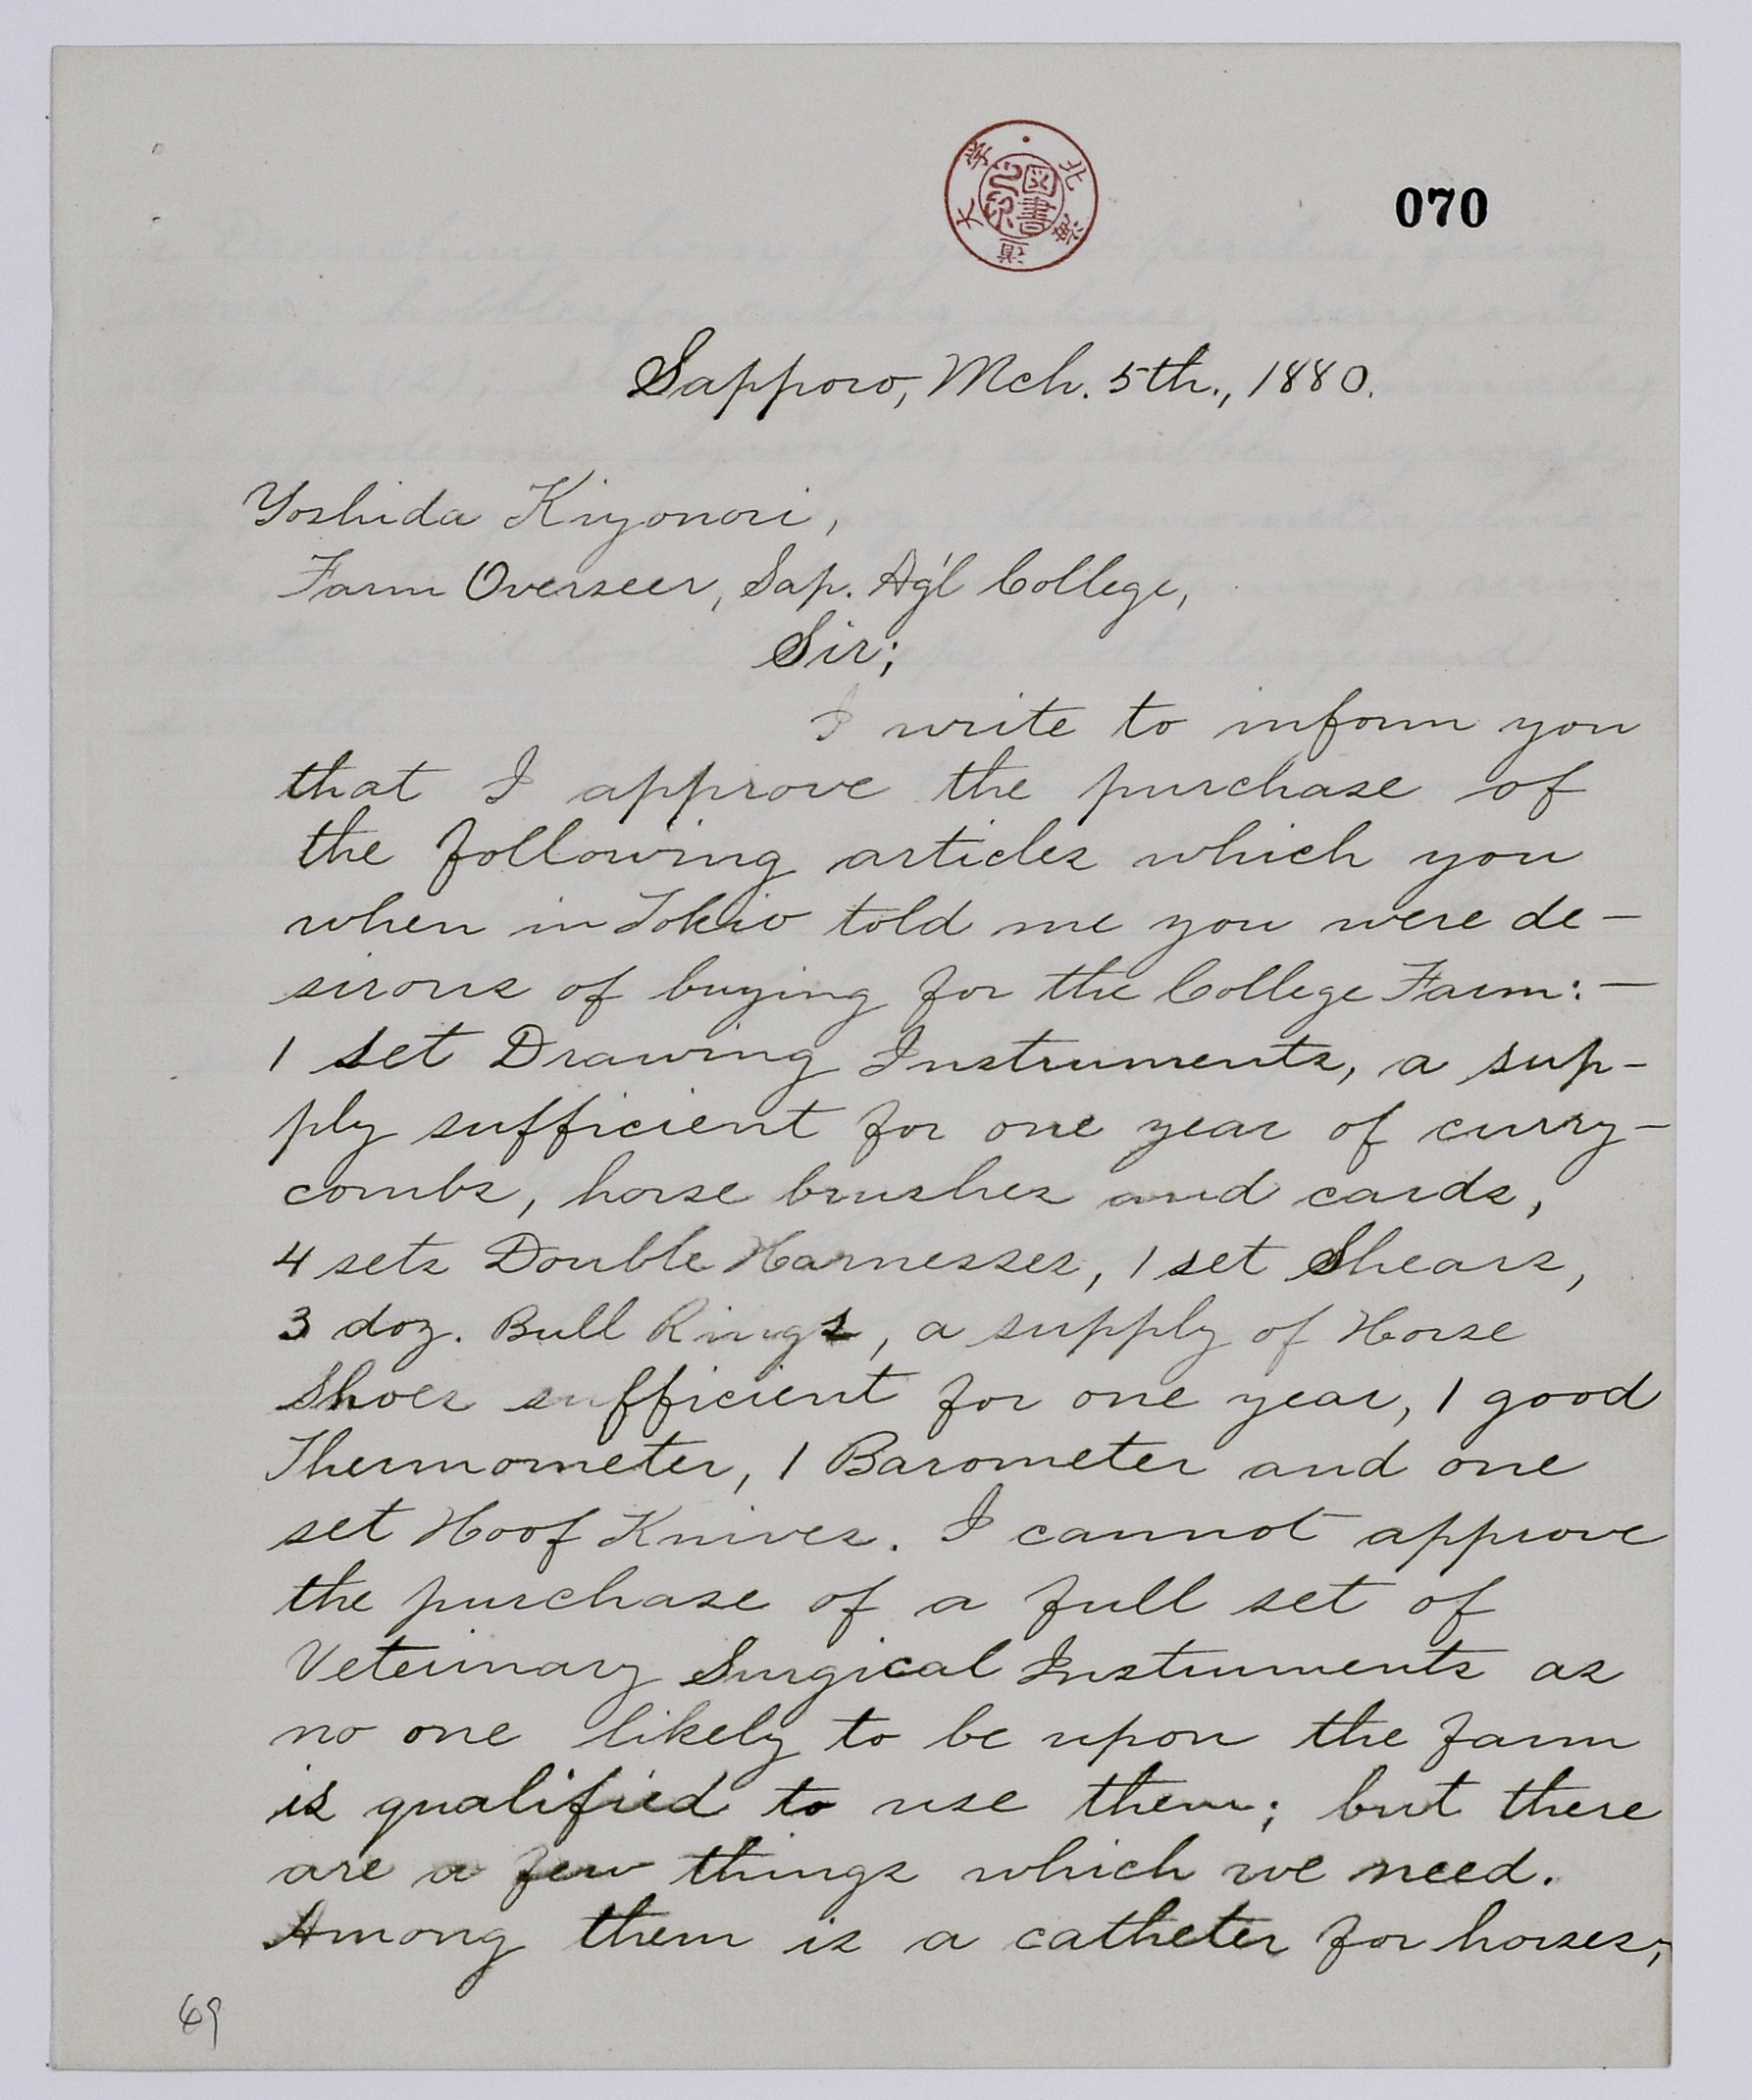 北海道大学
図書之印
070
Sapporo, Mch. 5th., 1880.
Yoshida Kiyonori,
Farm Overseer, Sap. Ag'l College,
Sir;
I write to inform you
that I approve the purchase of
the following articles which you
when in Tokio told me you were de-
sirous of buying for the College Farm:—
1 set Drawing Instruments, a sup-
ply sufficient for one year of curry-
combs, horse brushes and cards,
4 sets Double Harnesses, 1 set Shears,
3 doz. Bull Rings, a supply of Horse
Shoes sufficient for one year, 1 good
Thermometer, 1 Barometer and one
set Hoof Knives. I cannot approve
the purchase of a full set of
Veterinary Surgical Instruments as
no one likely to be upon the farm
is qualified to use them; but there
are a few things which we need.
Among them is a catheter for horses,
69